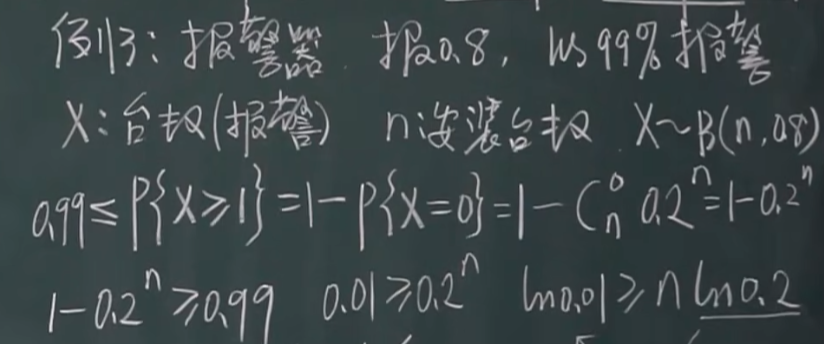 例3：报警器 报0.8，以99%报警
X：台数(报警) n：安装台数 X~B(n,0.8)
0.99≤P{X≥1}=1-P{X=0}=1-C_n^0 0.2^n=1-0.2^n
1-0.2^n≥0.99 0.01≥0.2^n ln0.01≥n ln0.2